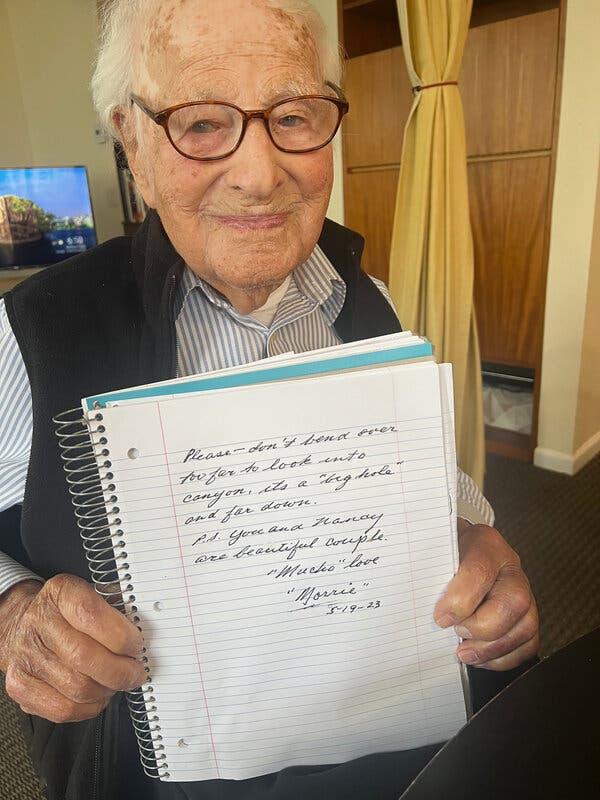 Please - don't bend over
too far to look into
canyon, its a "big hole"
and far down.
P.S. You and Nancy
are beautiful couple.
"Mucho" love
"Morrie"
5-19-23
6:50